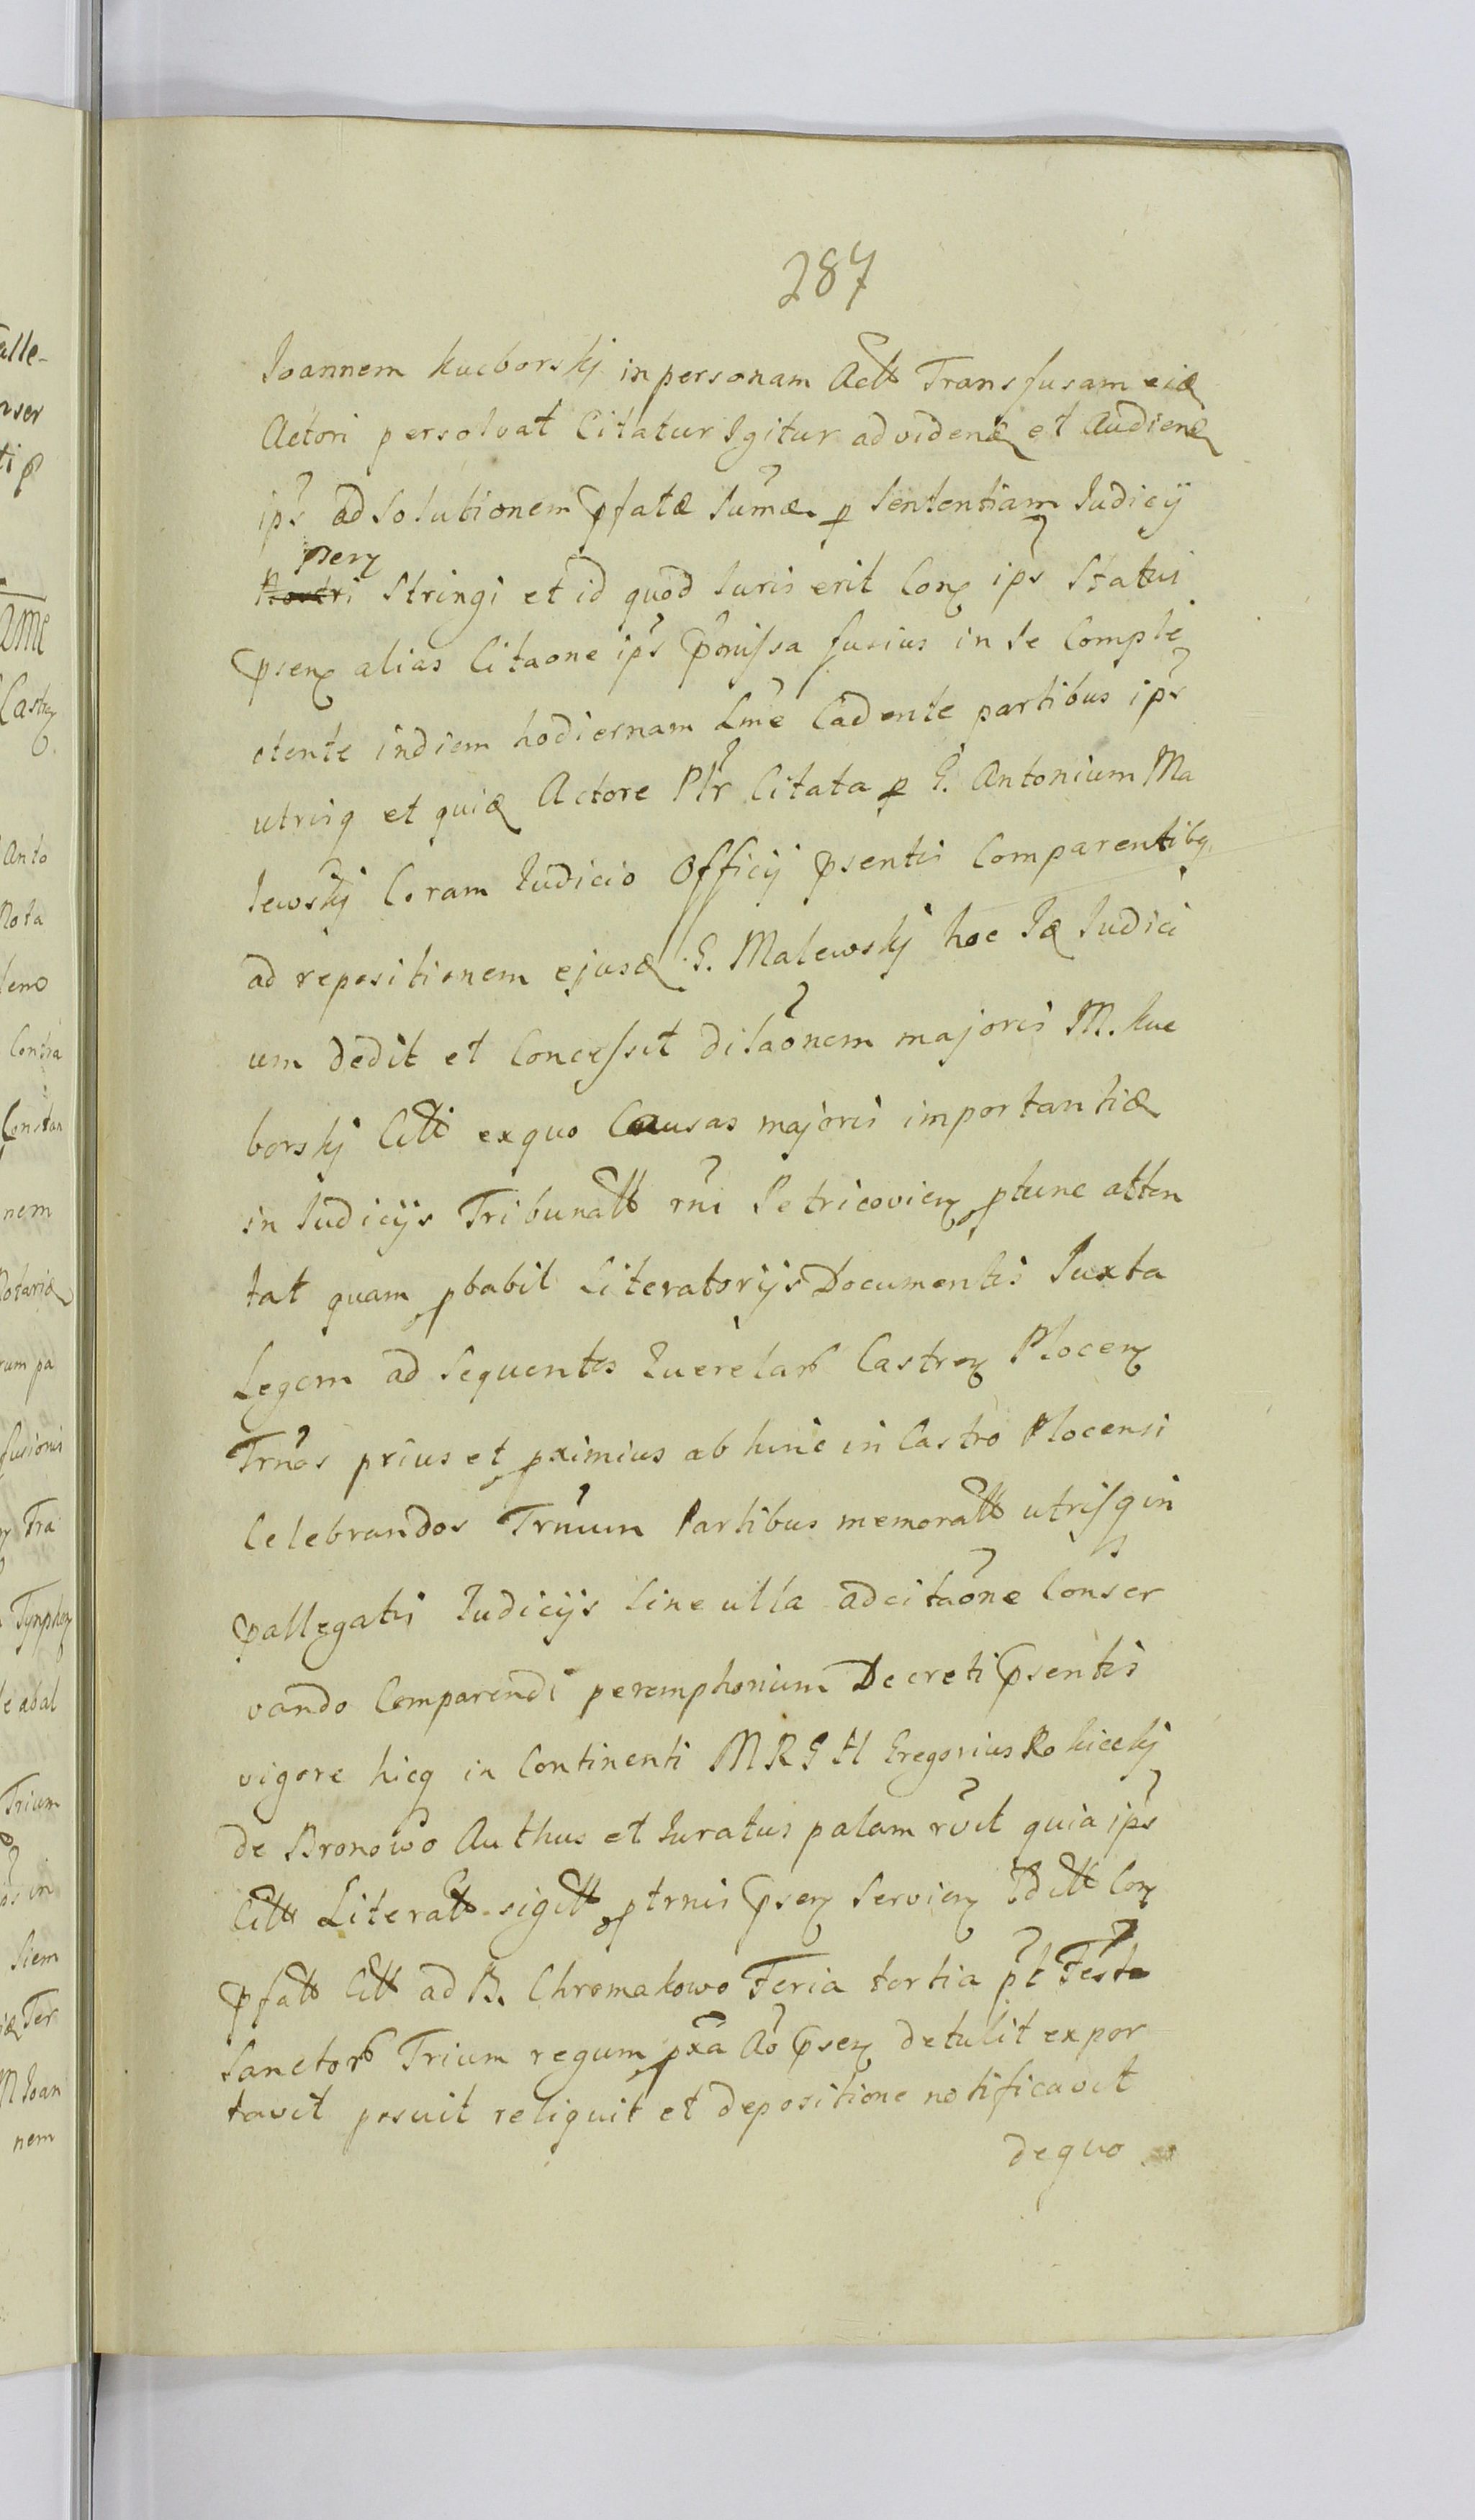 287
Joannem Kucborskj in personam Actt Transfusam eid
Actori persolvat Citatur Igitur ad videnđ et Audienđ
ips ad Solutionem pfatæ Sumæ p Sententiam Judicÿ
psen
Nostri Stringi et id quod Juris erit Con ips Statui
psen alias Citaone ips pmissa fusius in Se Comple
ctente in diem hodiernam Lme Cadente partibus ips
utrisq et quid Actore Plr Citata p G. Antonium Ma
lewskj Coram Judicio Officij psentis Comparentibq
ad repositionem ejusd G. Malewskj hoc Id Judici
um dedit et Concessit dilaonem majoris M. Kuc
borskj Citti ex quo Causas majoris importantiæ
in Judicijs Tribunatt rni Petricovien ptunc atten
tat quam pbabit Literatorijs Documentis Juxta
Legem ad Sequentes Querelar Castren Plocen
Trnos prius et pximius ab hinc in Castro Plocensi
Celebrandos Trnum Partibus memoratt utrisq in
pallegatis Judicijs Sine ulla adcitaone Conser
vando Comparendi peremphorium Decreti psentis
vigore hicq in Continenti M R G H Gregorius Rokickj
de Bronowo Authus et Juratus palam rvit quia ips
Citt Literatt sigitt ptrnis psen Servien Iditt Con
pfatt Citt ad B. Chromakowo Feria tertia pt Festa
Sanctor Trium regum pxa Ao psen detulit expor
tavit posuit reliquit et depositione notificavit
de quo
alle-
Castren
Anto
Nota
Contra
Constan
nem
rum pa
fusionis
Tra
Tynphon
Trium
Siem
Ter
M Joan
nem